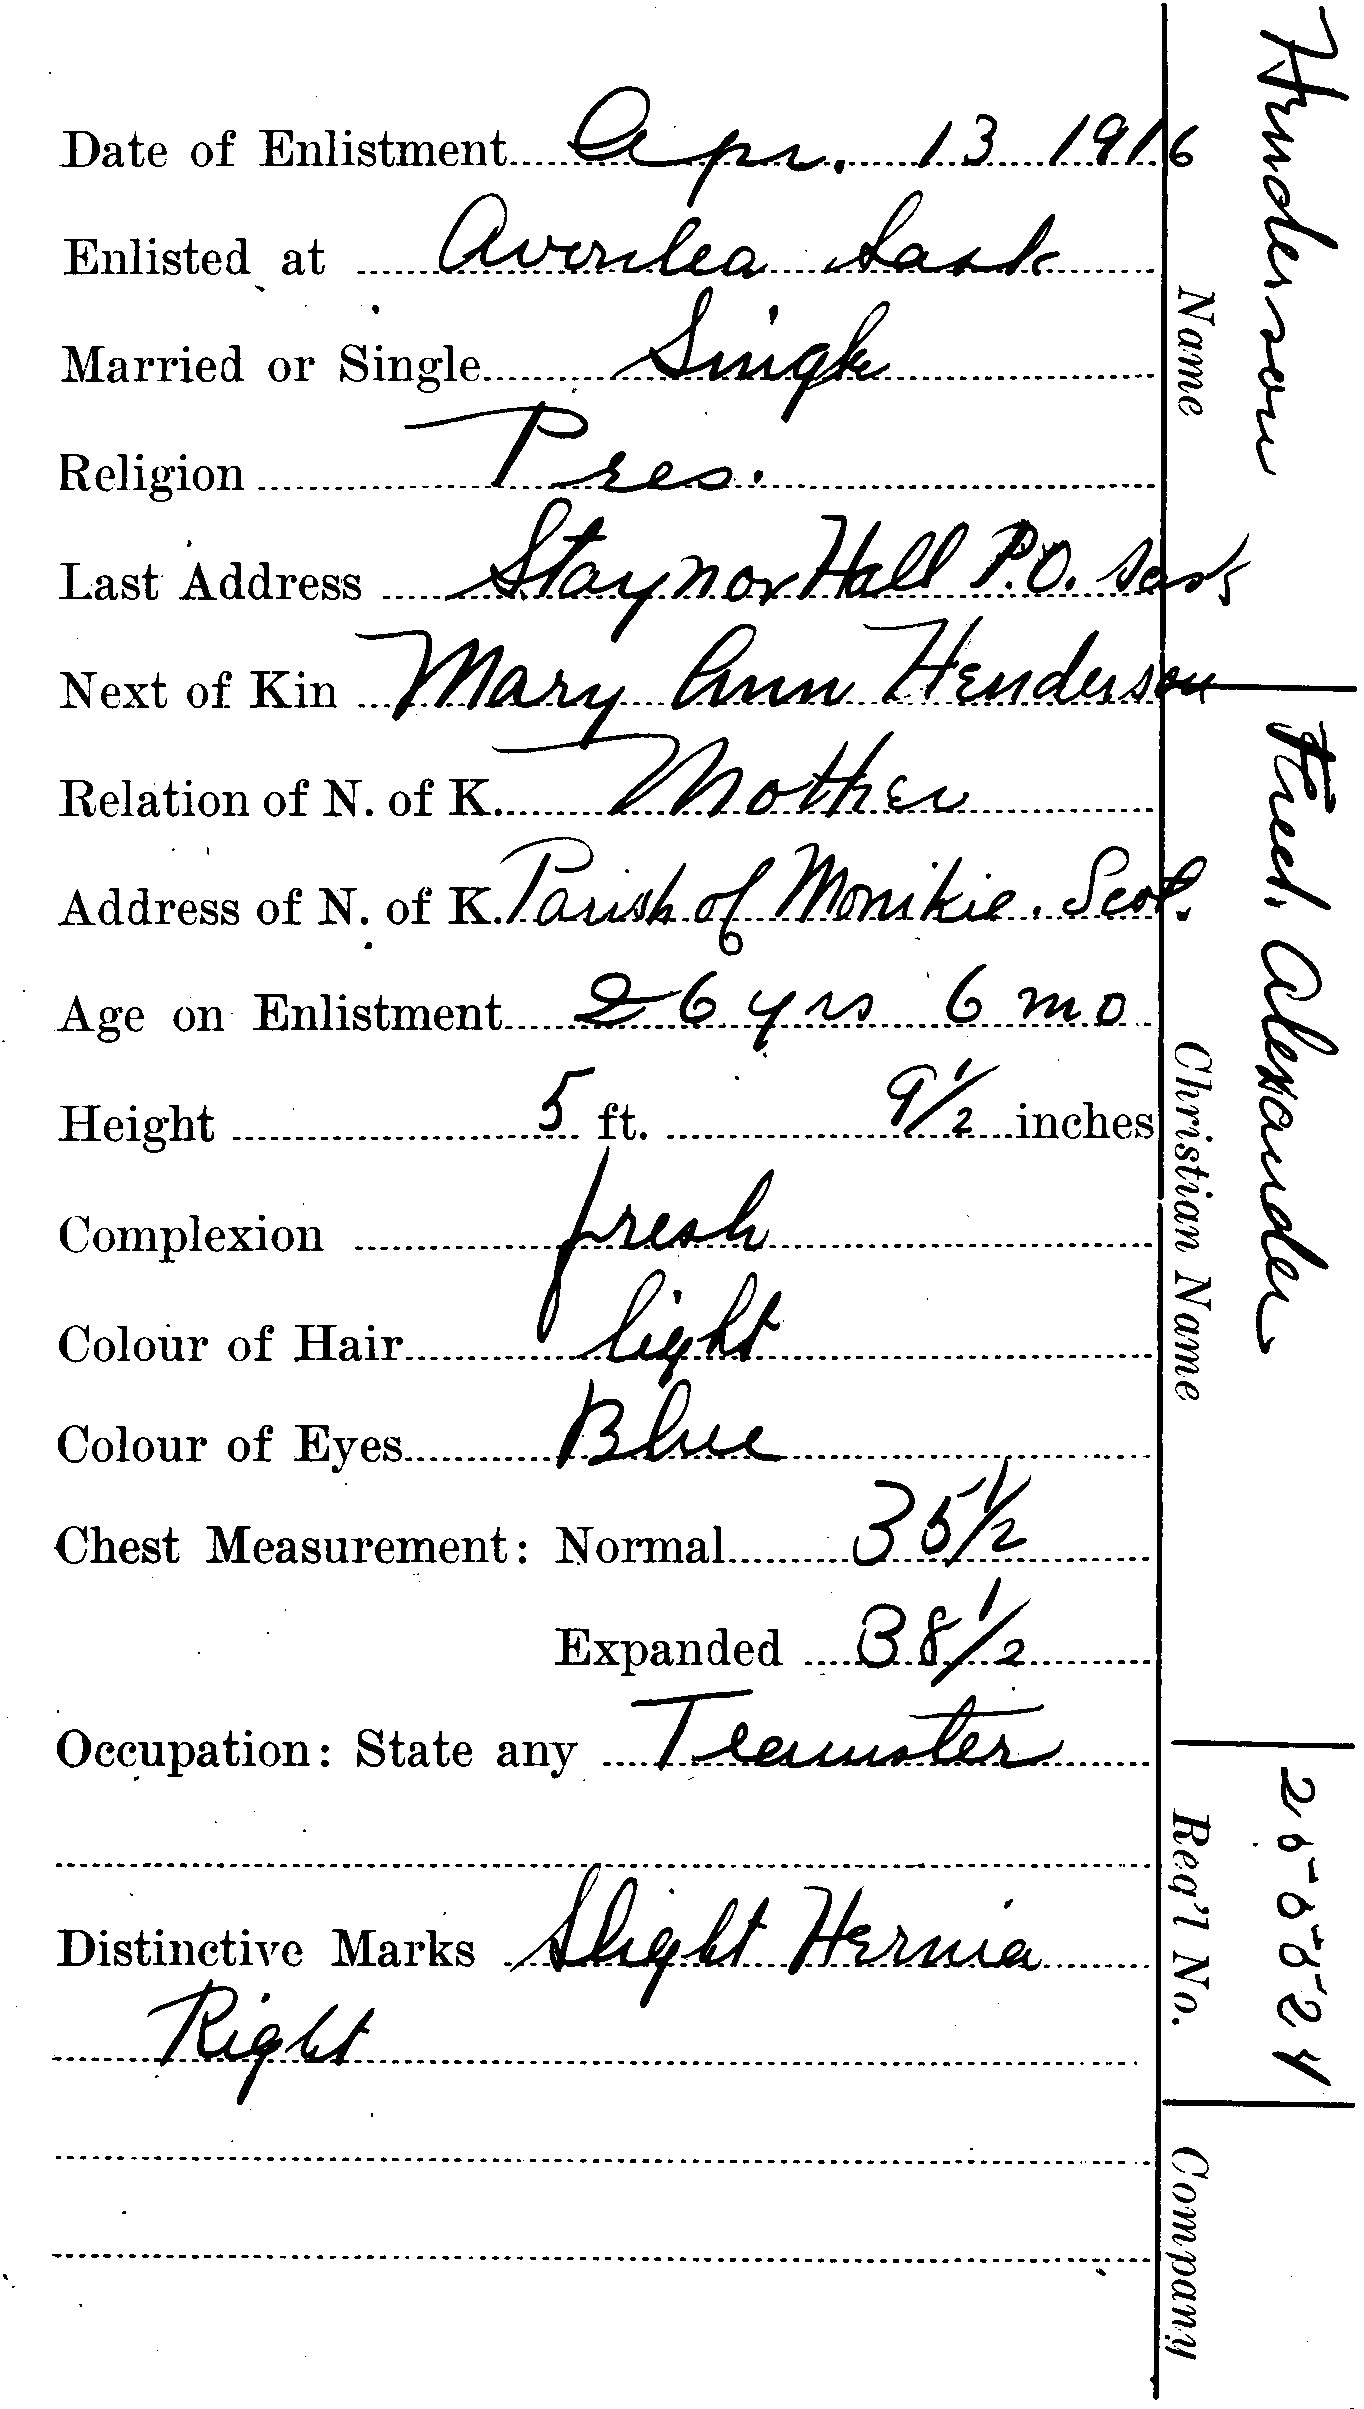 Date of Enlistment Apr. 13 1916
Enlisted at Averilea Sask
Married or Single Single
Religion Pres.
Last Address Staynor Hall P.O. Sask
Next of Kin Mary Ann Henderson
Relation of N. of K. Mother
Address of N. of K. Parish of Monikie. Scot.
Age on Enlistment 26 yrs 6 mo
Height 5 ft. 9½ inches
Complexion fresh
Colour of Hair light
Colour of Eyes Blue
Chest Measurement: Normal 35½
Expanded 38½
Occupation: State any Teamster
Distinctive Marks Slight Hernia
Right
Henderson
Name
Fred. Alexander
Christian Name
255524
Reg'l No.
Company